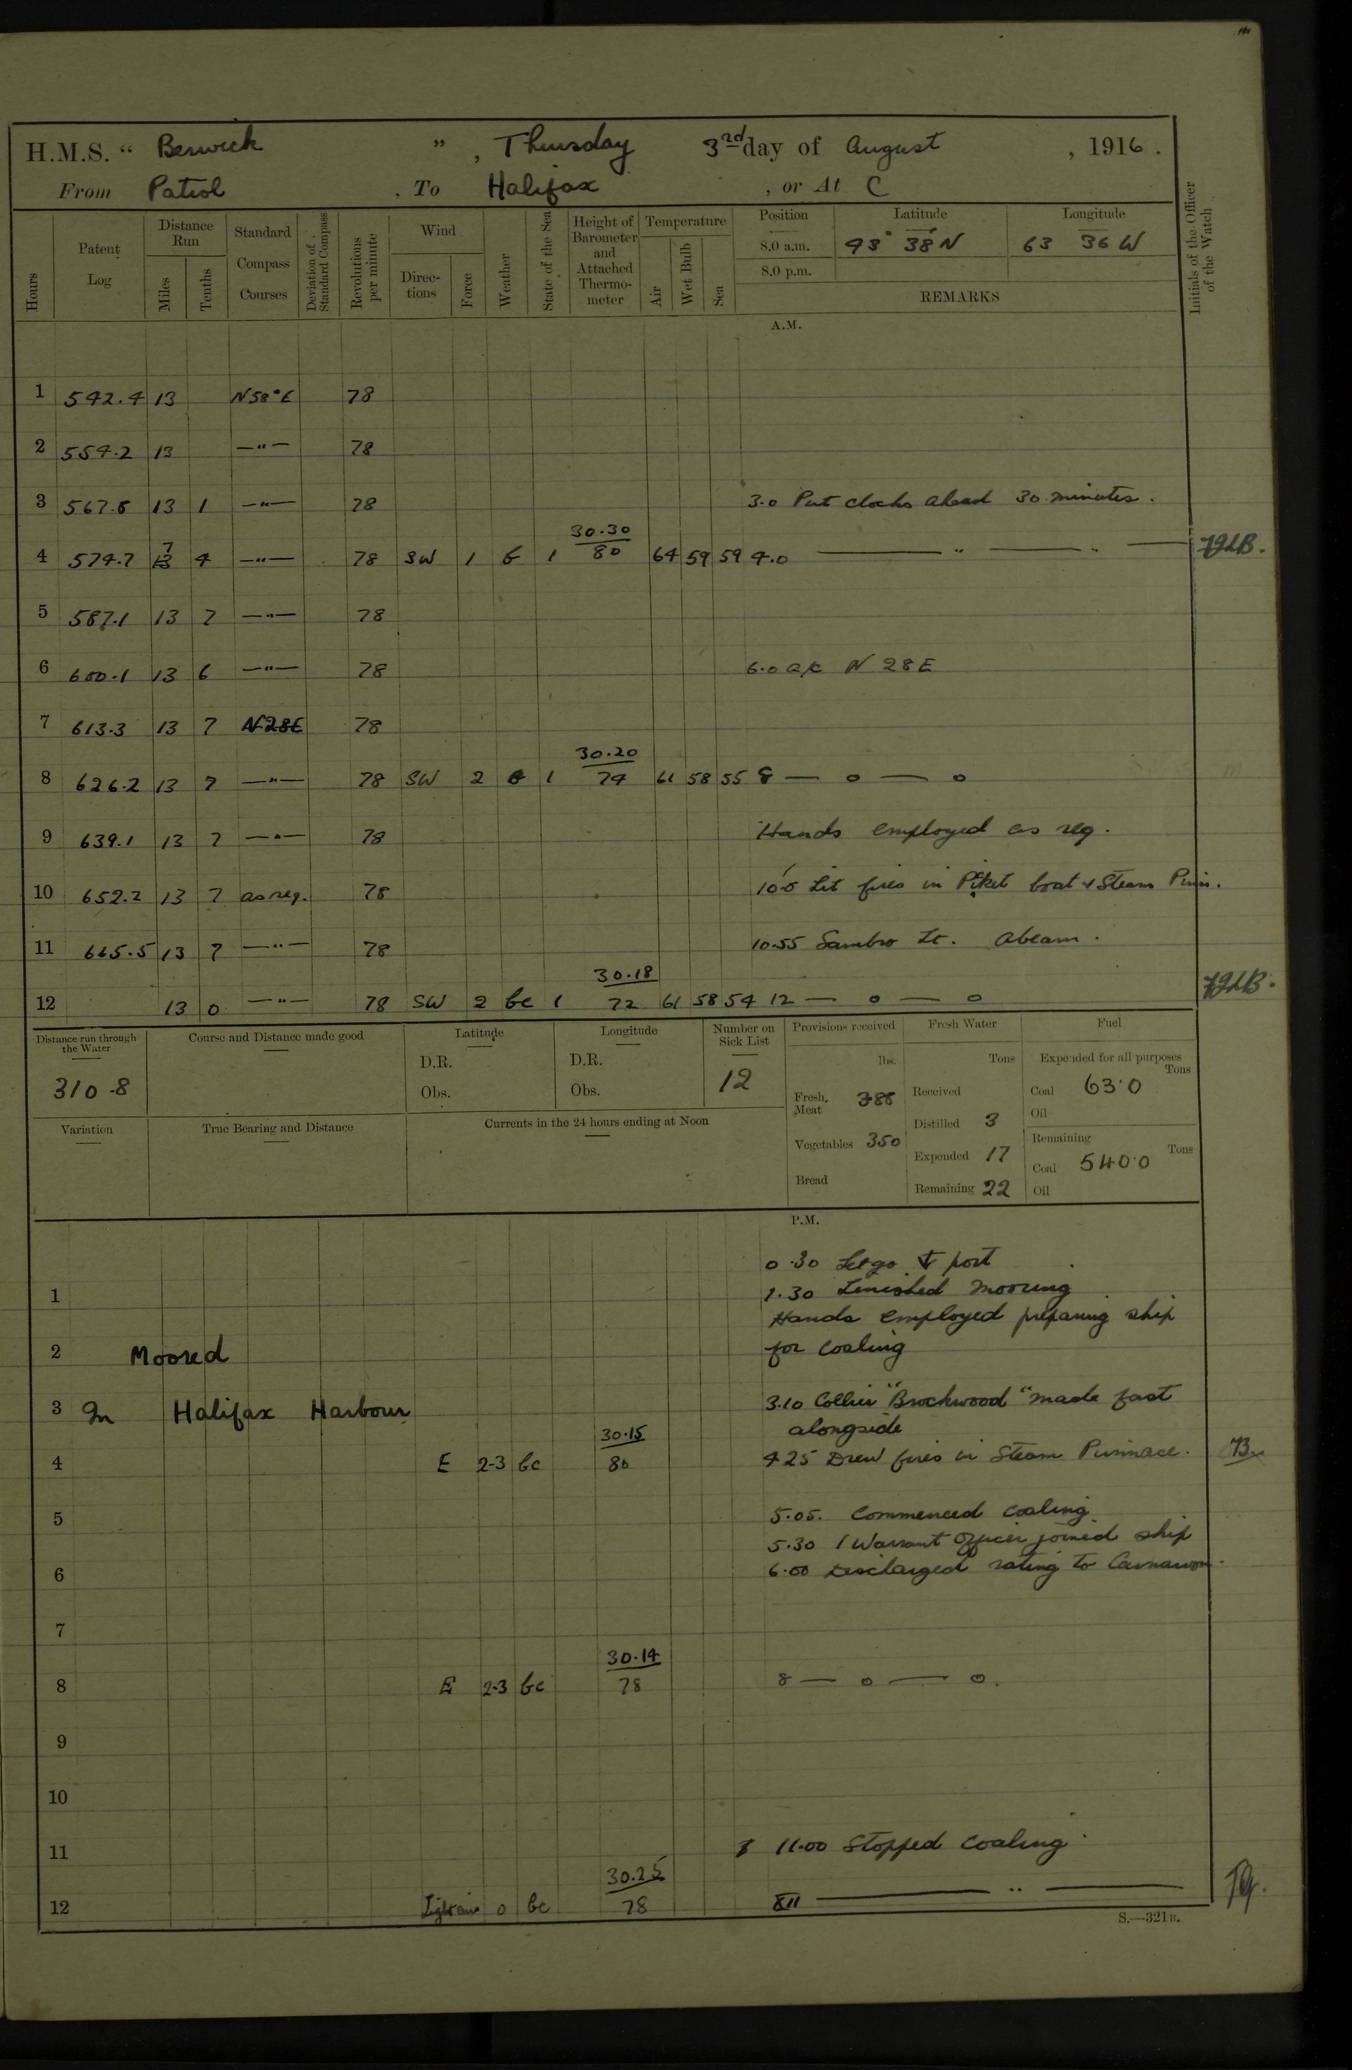 H.M.S. “ Berwick ” , Thursday 3rd day of August , 1916 .
From Patrol , To Halifax , or At C
Hours Patent Log Distance Run Miles Tenths Standard Compass Courses Deviation of Standard Compass Revolutions per minute Wind Direc-tions Force Weather State of the Sea Height of Barometer and Attached Thermo-meter Temperature Air Wet Bulb Sea Position Latitude Longitude Initials of the Officer of the Watch
8.0 a.m. 43° 38' N 63 36 W
8.0 p.m.
REMARKS
A.M.
1 542.4 13 N58°E 78
2 554.2 13 —"— 78
3 567.8 13 1 —"— 78 3.0 Put clocks ahead 30 minutes .
30.30
4 574.7 7 13 4 —"— 78 SW 1 b 1 80 64 59 59 4.0 — " — " —
5 587.1 13 7 —"— 78
6 600.1 13 6 —"— 78 6.0 a/c N 28 E
7 613.3 13 7 N28E 78
30.20
8 626.2 13 7 —"— 78 SW 2 b 1 74 61 58 55 8 — o — o
9 639.1 13 7 —"— 78 Hands employed as req.
10 652.2 13 7 as req. 78 10.0 Lit fires in Piket boat & Steam Pinn.
11 665.5 13 7 —"— 78 10.55 Sambro Lt. abeam .
30.18
12 13 0 —"— 78 SW 2 bc 1 72 61 58 54 12 — o — o
Distance run through the Water Course and Distance made good Latitude Longitude Number on Sick List Provisions received Fresh Water Fuel
310.8 D.R. D.R. 12 lbs. Tons Expended for all purposes Tons
Obs. Obs. Fresh Meat 388 Received Coal 63.0
Distilled 3 Oil
Variation True Bearing and Distance Currents in the 24 hours ending at Noon Vegetables 350 Expended 17 Remaining Tons
Coal 540.0
Bread Remaining 22 Oil
P.M.
0.30 Let go ⚓ port
1 1.30 Finished mooring
Hands employed preparing ship
2 Moored for coaling
3 In Halifax Harbour 3.10 Collier "Brockwood" made fast
30.15 alongside
4 E 2-3 bc 80 4 25 Drew fires in Steam Pinnace.
5 5.05. Commenced coaling
5.30 1 Warrant Officer joined ship
6 6.00 Discharged rating to Carnarvon.
7
30.14
8 E 2-3 bc 78 8 — o — o.
9
10
11 11.00 Stopped coaling
30.25
12 Light airs 0 bc 78 XII — " —
S.—321B.